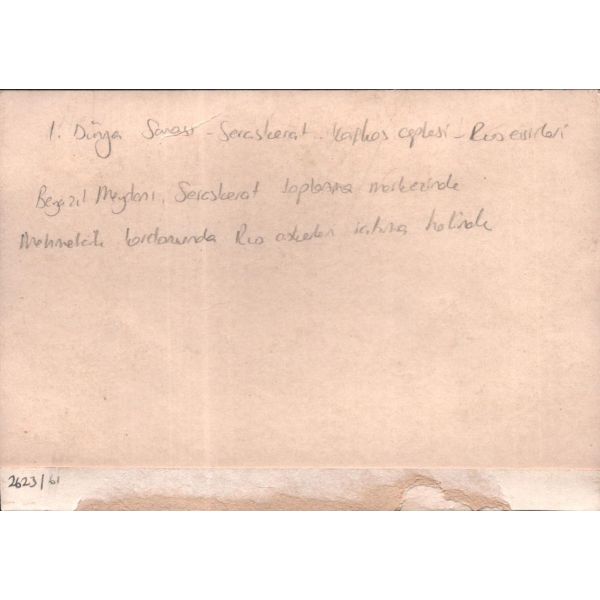 1. Dünya Savaşı - Seraskerat - Kafkas cephesi - Rus esirleri
Beyazıt Meydanı, Seraskerat toplanma merkezinde
Mehmetcik kordonunda Rus askerleri istima halinde
2623/61